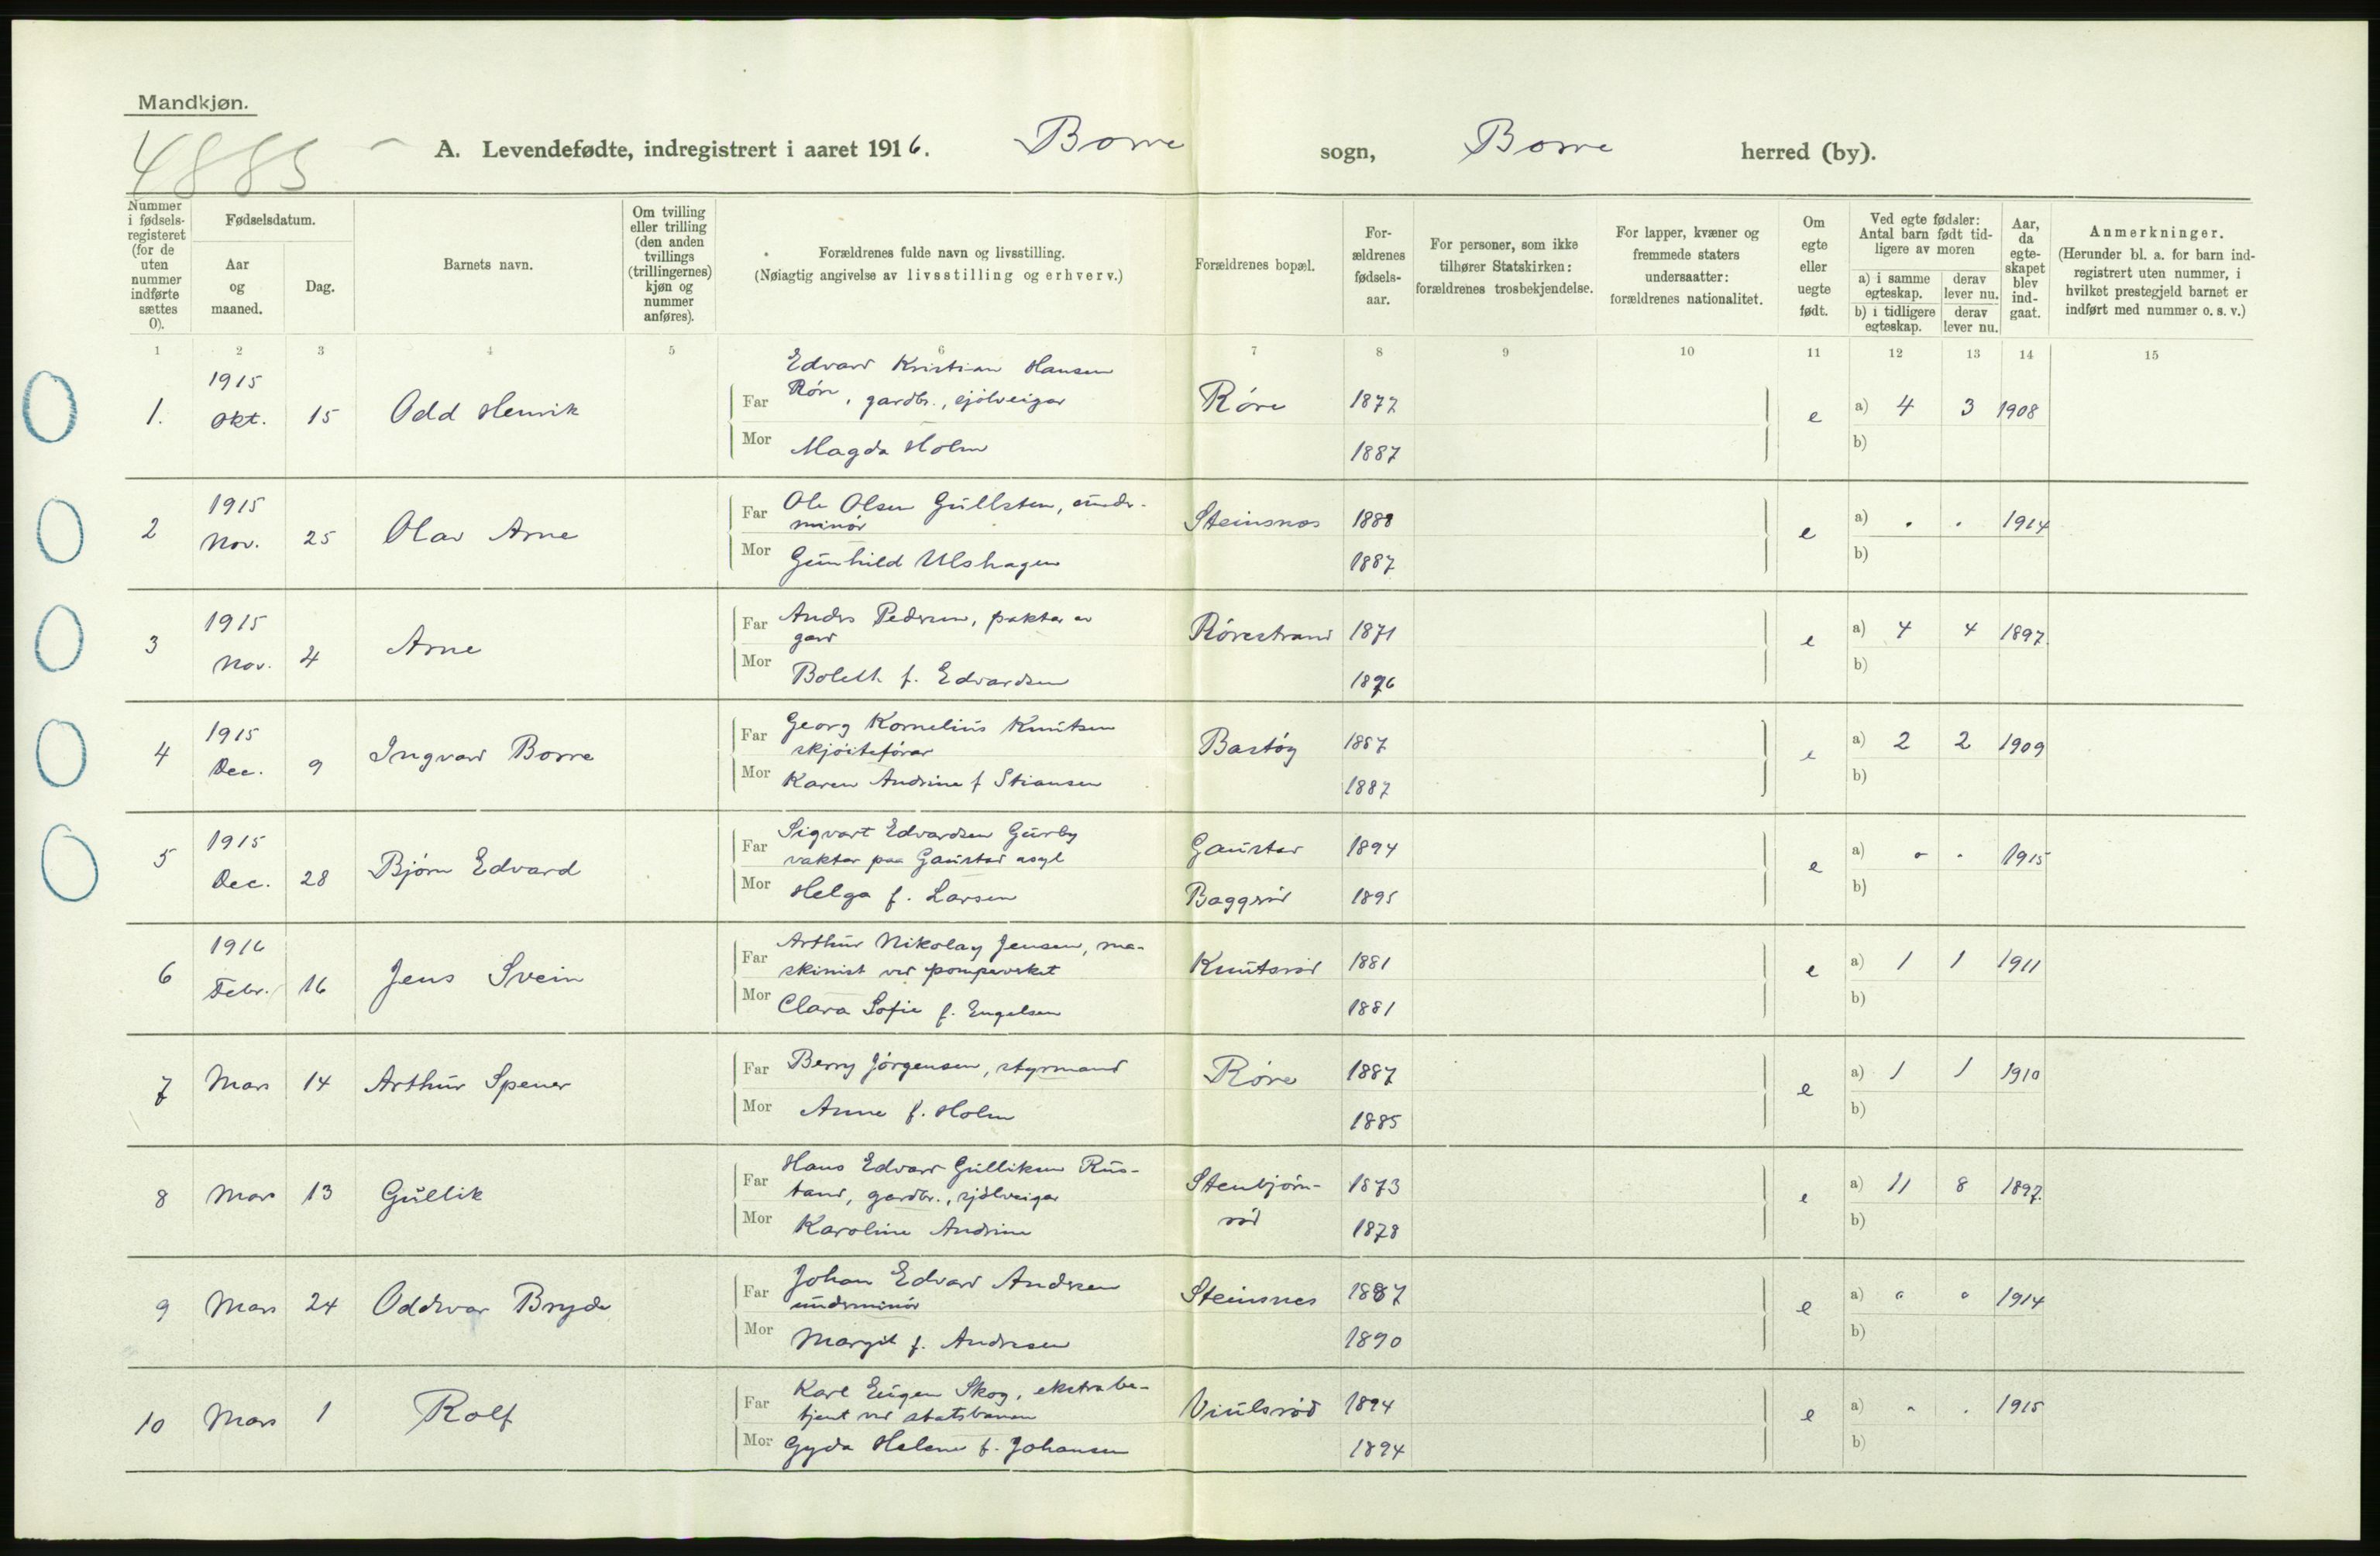 Mandkjøn.
4885
A. Levendefødte, indregistrert i aaret 1916. Borre sogn, Borre herred (by).
Nummer i fødsels-registeret (for de uten nummer indførte sættes 0).
Fødselsdatum.
Aar og maaned.
Dag.
Barnets navn.
Om tvilling eller trilling (den anden tvillings (trillingernes) kjøn og nummer anføres).
Forældrenes fulde navn og livsstilling.
(Nøiagtig angivelse av livsstilling og erhverv.)
Forældrenes bopæl.
For-ældrenes fødsels-aar.
For personer, som ikke tilhører Statskirken: forældrenes trosbekjendelse.
For lapper, kvæner og fremmede staters undersaatter: forældrenes nationalitet.
Om egte eller uegte født.
Ved egte fødsler: Antal barn født tid-ligere av moren
a) i samme egteskap.
derav lever nu.
b) i tidligere egteskap.
derav lever nu.
Aar, da egte-skapet blev ind-gaat.
Anmerkninger.
(Herunder bl. a. for barn ind-registrert uten nummer, i hvilket prestegjeld barnet er indført med nummer o. s. v.)
1 2 3 4 5 6 7 8 9 10 11 12 13 14 15
1. 1915 Okt. 15 Odd Henrik
Far Edvard Kristian Hansen
Röre, gardbr., sjölveigar Röre 1877 e a) 4 3 1908
Mor Magda Holm 1887 b)
2 1915 Nov. 25 Olav Arne
Far Ole Olsen Gullsten, under-
minör Steinsnes 1888 e a) " " 1914
Mor Gunhild Ulshagen 1887 b)
3 1915 Nov. 4 Arne
Far Anders Pedersen, paktar av
gard Rörestrand 1871 e a) 4 4 1897.
Mor Boleth f. Edvardsen 1876 b)
4 1915 Dec. 9 Ingvard Borre
Far Georg Kornelius Knutsen
skjöiteförar Bastöy 1887 e a) 2 2 1909
Mor Karen Andrine f Stiansen 1887 b)
5 1915 Dec. 28 Björn Edvard
Far Sigvart Edvardsen Gurby
vaktar paa Gaustad asyl Gaustad 1894 e a) " " 1915
Mor Helga f. Larsen Baggeröd 1895 b)
6 1916 Febr. 16 Jens Svein
Far Arthur Nikolay Jensen, ma-
skinist ved pompeverket Knutsröd 1881 e a) 1 1 1911
Mor Clara Sofie f. Engelsen 1881 b)
7 Mars 14 Arthur Spener
Far Berry Jörgensen, styrmand Röre 1887 e a) 1 1 1910
Mor Anne f. Holm 1885 b)
8 Mars 13 Gullik
Far Hans Edvard Gulliksen Rus-
tand, gardbr., sjölveigar Stenbjörn-
röd 1873 e a) 11 8 1897.
Mor Karoline Andrine 1878 b)
9 Mars 24 Oddvar Bryde
Far Johan Edvard Andresen
underminör Steinsnes 1887 e a) " " 1914
Mor Margit f. Andresen 1890 b)
10 Mars 1 Rolf
Far Karl Eugen Skog, ekstrabe-
tjent ved statsbanen Viulsröd 1894 e a) " " 1915
Mor Gyda Helene f. Johansen 1894 b)